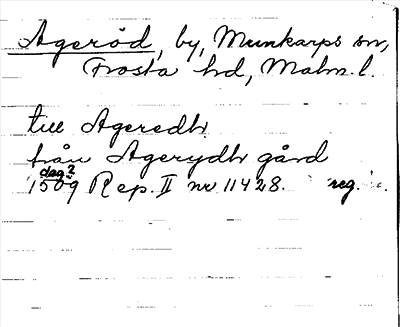 Ageröd, by, Munkarps sn,
Frosta hd, Malm. l.
till Ageredh
från Agerydh gård
dag?
1509 Rep. II nr 11428. reg.